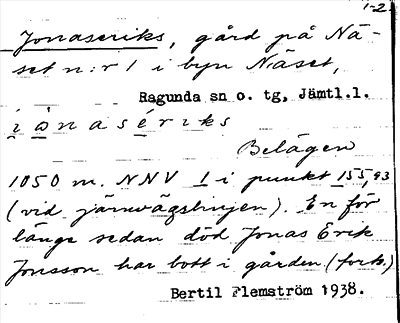 1-2.
Jonaseriks, gård på Nä-
set n:r 1 i byn Näset,
Ragunda sn o. tg, Jämtl.l.
i̱ å̱ n a s é̱ r i k s
Belägen
1050 m. NNV 1 i punkt 155,93
(vid järnvägslinjen). En för
länge sedan död Jonas Erik
Jonsson har bott i gården (fork.)
Bertil Flemström 1938.